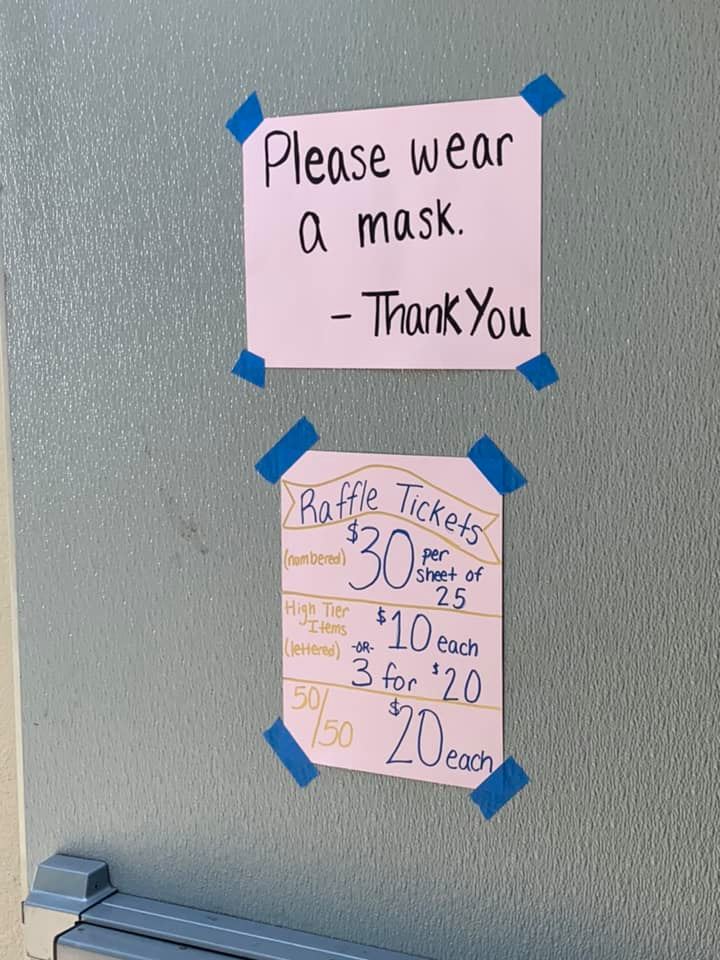 Please wear
a mask.
- Thank You
Raffle Tickets
(numbered) $30 per
sheet of
25
High Tier
Items
(lettered)
$10 each
-OR-
3 for $20
50/50 $20 each